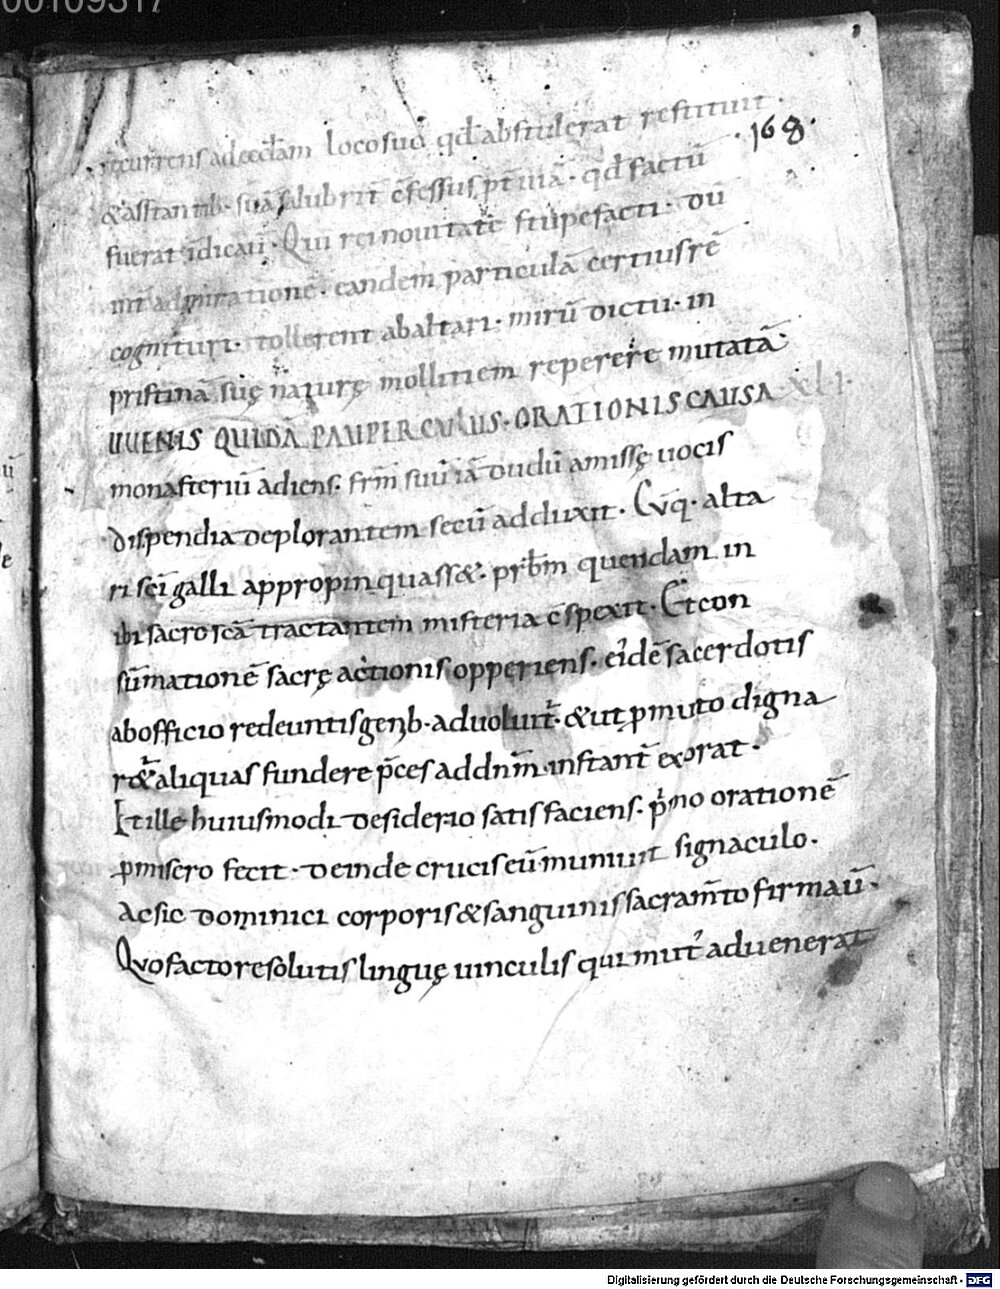 00109317
recurrens ad ecclam loco suo qd abstulerat restituit.
168.
& asstantib; suā salubrit c̄fessus p̄tinā. qd factū
fuerat īdicaū. Qui rei nouitate stupefacti. dū
int admiratione. eandem particulā certius rē
cognituri. tollerent ab altari. mirū dictu. in
pristinā suę naturę mollitiem reperere mutatā
UUENIS QUIDĀ PAUPERCULUS. ORATIONIS CAUSA XLI.
monasteriū adiens. frm̄ suū iā dudū amissę uocis
dispendia deplorantem secū adduxit. Cūq. alta
ri sc̄i galli appropinquass&. prb̄m quendam in
ibi sacroscā tractantem misteria c̄spexit. Et con
sūmationē sacrę actionis opperiens. eidē sacerdotis
ab officio redeuntis genb. aduoluit. & ut p muto digna
r& aliquas fundere p̄ces ad dn̄m instant̄ exorat.
Et ille huiusmodi desiderio satisfaciens. pmo orationē
p misero fecit. deinde crucis eū muniuit signaculo.
Ac sic dominici corporis & sanguinis sacram̄to firmaū.
Quo facto resolutis linguę uinculis qui mut' aduenerat
Digitalisierung gefördert durch die Deutsche Forschungsgemeinschaft - DFG